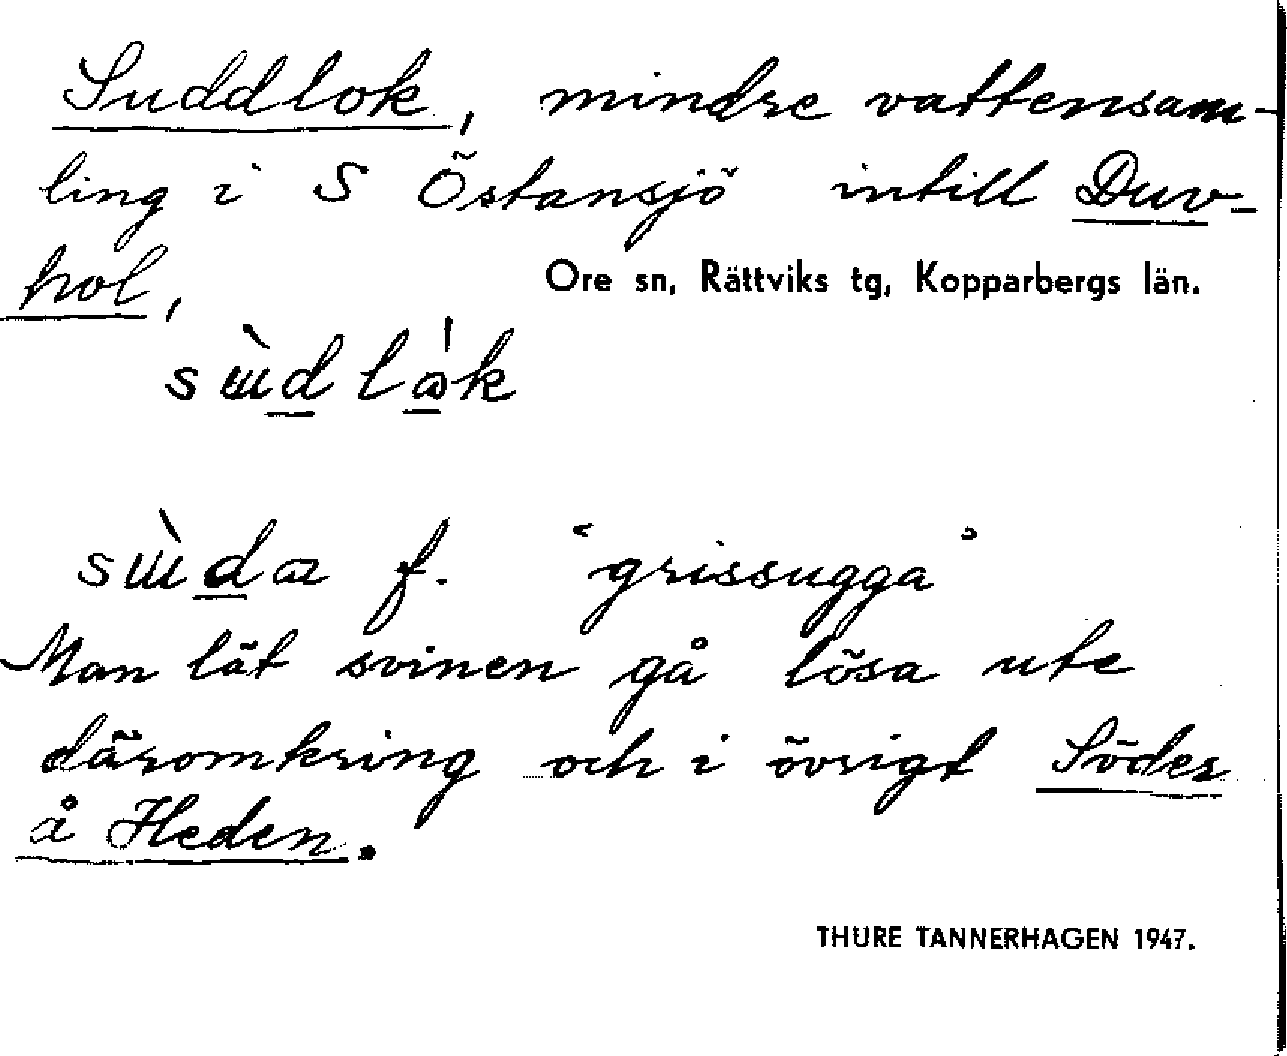 Suddlok, mindre vattensam-
ling i S Östansjö intill Duv-
hol,
Ore sn, Rättviks tg, Kopparbergs län.
f. "grissugga"
Man lät svinen gå lösa ute
däromkring och i övrigt Söder
å Heden.
THURE TANNERHAGEN 1947.